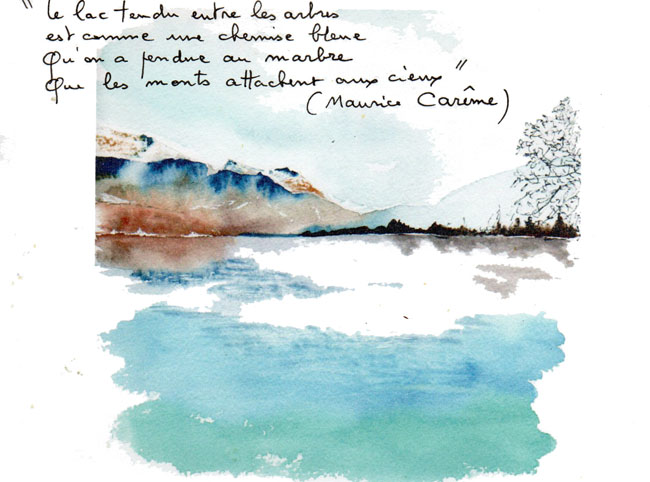 " Le lac tendu entre les arbres
est comme une chemise bleue
Qu'on a pendue au marbre
Que les monts attachent aux cieux "
(Maurice Carême)